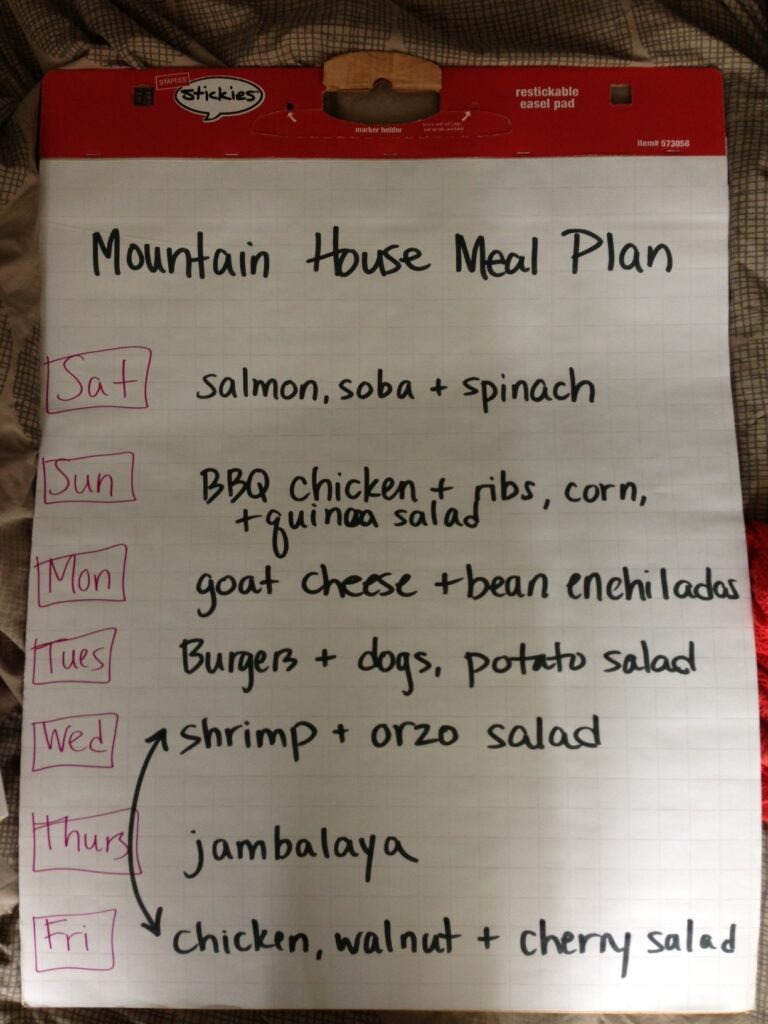 STAPLES
stickies
restickable
easel pad
marker holder
item# 573058
Mountain House Meal Plan
Sat salmon, soba + spinach
Sun BBQ chicken + ribs, corn,
+ quinoa salad
Mon goat cheese + bean enchiladas
Tues Burgers + dogs, potato salad
Wed shrimp + orzo salad
Thurs jambalaya
Fri chicken, walnut + cherry salad